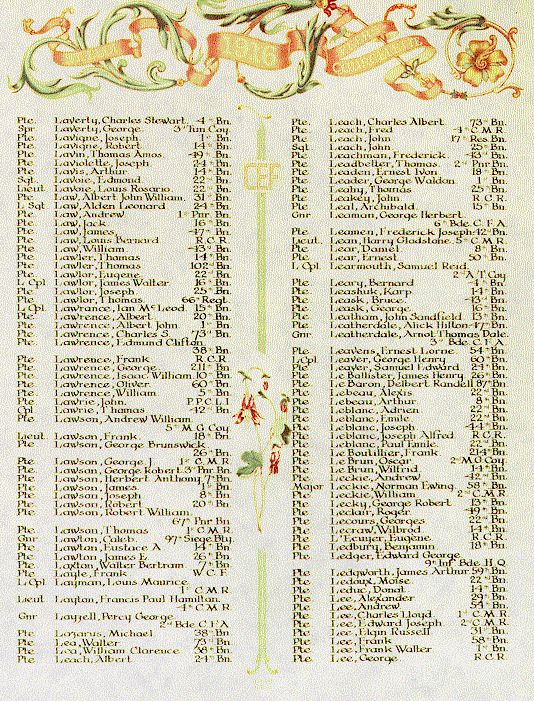 1916
CEF
Pte. Laverty, Charles Stewart. 4th Bn.
Spr Laverty, George. 3rd Tun. Coy.
Pte Lavigne, Joseph. 1st Bn.
Pte Lavigne, Robert 14th Bn.
Pte Lavin, Thomas Amos. 49th Bn.
Pte Laviolette, Joseph. 24th Bn.
Pte Lavis, Arthur 14th Bn.
Sgt. Lavoie, Edmond 22nd Bn.
Lieut. Lavoie, Louis Rosario. 22nd Bn.
Pte Law, Albert John William. 31st Bn.
L Sgt Law, Alden Leonard 24th Bn.
Pte Law, Andrew 1st Pnr. Bn.
Pte Law, Jack 16th Bn.
Pte Law, James, 47th Bn.
Pte Law, Louis Bernard R.C.R.
Pte Law, William 43rd Bn.
Pte Lawler, Thomas 14th Bn.
Pte Lawler, Thomas 102nd Bn.
Pte Lawlor, Eugene 22nd Bn.
L Cpl Lawlor, James Walter 16th Bn.
Pte Lawlor, Joseph 25th Bn.
Pte Lawlor, Thomas 66th Regt.
L Cpl Lawrance, Ian McLeod. 15th Bn.
Pte Lawrence, Albert 20th Bn.
Pte Lawrence, Albert John 1st Bn.
Pte Lawrence, Charles S. 73rd Bn.
Pte Lawrence, Edmund Clifton
38th Bn.
Pte Lawrence, Frank R.C.R.
Pte Lawrence, George 211th Bn.
Pte Lawrence, Isaac William. 10th Bn.
Pte Lawrence, Oliver. 60th Bn.
Pte Lawrence, William 5th Bn.
Pte Lawrie, John. P.P.C.L.I
Cpl Lawrie, Thomas 42nd Bn.
Pte Lawson, Andrew William.
5th M.G. Coy.
Lieut Lawson, Frank. 18th Bn.
Pte Lawson, George Brunswick
26th Bn.
Pte Lawson, George J 1st C.M.R.
Pte Lawson, George Robert. 3rd Pnr Bn.
Pte Lawson, Herbert Anthony. 7th Bn.
Pte Lawson, James. 1st Bn.
Pte Lawson, Joseph 8th Bn.
Pte Lawson, Robert 20th Bn.
Pte Lawson, Robert William
67th Pnr Bn
Pte Lawson, Thomas 1st C.M.R.
Gnr Lawton, Caleb. 97th Siege Bty.
Pte Lawton, Eustace A 14th Bn
Pte Lawton, James E. 26th Bn.
Pte Laxton, Walter Bertram 7th Bn
Pte Layfe, Frank W.C.F.
L Cpl Layman, Louis Maurice
1st C.M.R
Lieut Layton, Francis Paul Hamilton.
4th C.M.R
Gnr Layzell, Percy George
2nd Bde. C.F.A
Pte Lazarus, Michael 38th Bn.
Pte Lea, Walter 73rd Bn.
Pte Lea, William Clarence 38th Bn.
Pte Leach, Albert 24th Bn.
Pte. Leach, Charles Albert 73rd Bn.
Pte Leach, Fred 4th C.M.R.
Pte Leach, John 17th Res Bn.
Sgt. Leach, John 25th Bn.
Pte Leachman, Frederick 43rd Bn.
Pte Leadbetter, Thomas 2nd Pnr Bn.
Pte Leaden, Ernest Ivon 18th Bn.
Pte Leader, George Waldon 1st Bn.
Pte Leahy, Thomas 25th Bn.
Pte Leakey, John R.C.R.
Pte Leal, Archibald 15th Bn.
Gnr Leaman, George Herbert.
6th Bde. C.F.A.
Pte Leamen, Frederick Joseph 42nd Bn.
Lieut. Lean, Harry Gladstone. 5th C.M.R.
Pte Lear, Daniel 8th Bn.
Pte Lear, Ernest 50th Bn.
L Cpl Learmouth, Samuel Reid.
2nd A.T. Coy
Pte Leary, Bernard 4th Bn
Pte Leashuk, Karp 14th Bn.
Pte Leask, Bruce. 43rd Bn.
Pte Leask, George 16th Bn.
Pte Leatham, John Sandfield 13th Bn.
Pte Leatherdale, Alick Hilton 47th Bn.
Gnr Leatherdale, Arnot Thomas Dale.
3rd Bde. C.F.A.
Pte Leavens, Ernest Lorne 54th Bn.
L Cpl Leaver, George Henry 60th Bn.
Pte Leaver, Samuel Edward 24th Bn.
Pte Le Ballister, James Henry 26th Bn.
Pte Le Baron, Delbert Randell 87th Bn.
Pte Lebeau, Alexis 22nd Bn.
Pte Lebeau, Arthur 8th Bn.
Pte Leblanc, Adrien 22nd Bn.
Pte Leblanc, Emile 22nd Bn.
Pte Leblanc, Joseph 44th Bn.
Pte Leblanc, Joseph Alfred R.C.R.
Pte Leblanc, Paul Emile. 22nd Bn.
Pte Le Boutillier, Frank 214th Bn.
Pte Le Brun, Oscar 2nd M.G. Coy.
Pte Le Brun, Wilfrid 14th Bn.
Pte Leckie, Andrew 42nd Bn.
Major Leckie, Norman Ewing. 58th Bn.
Pte Leckie, William 2nd C.M.R.
Pte Lecky, George Robert 13th Bn.
Pte Leclair, Roger 49th Bn.
Pte Lecours, Georges 22nd Bn.
Pte Lecraw, Wilbrod 14th Bn.
Pte L'Ecuyer, Eugène R.C.R.
Pte Ledbury, Benjamin 18th Bn
Pte Ledger, Edward George
9th Inf Bde. H.Q.
Pte Ledgworth, James Arthur 59th Bn.
Pte Ledoux, Moise 22nd Bn.
Pte Leduc, Donat 14th Bn.
Pte Lee, Alexander 29th Bn.
Pte Lee, Andrew 54th Bn.
Pte Lee, Charles Lloyd 1st C.M.R.
Pte Lee, Edward Joseph 2nd C.M.R.
Pte Lee, Elgin Russell 31st Bn.
Pte Lee, Frank 58th Bn.
Pte Lee, Frank Walter 1st Bn.
Pte Lee, George R.C.R.